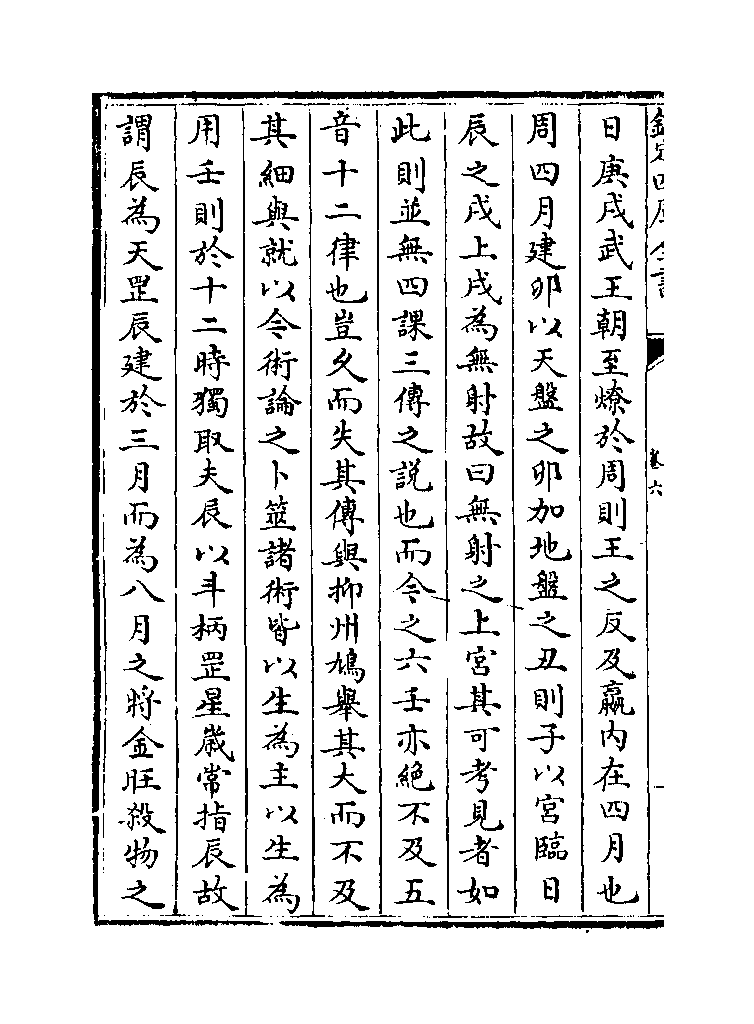 欽定四庫全書
卷六
日庚戌武王朝至燎於周則王之反及嬴內在四月也
周四月建卯以天盤之卯加地盤之丑則子以宮臨日
辰之戌上戌為無射故曰無射之上宮其可考見者如
此則並無四課三傳之說也而今之六壬亦絕不及五
音十二律也豈久而失其傳與抑州鳩舉其大而不及
其細與就以今術論之卜筮諸術皆以生為主以生為
用壬則於十二時獨取夫辰以斗柄罡星歲常指辰故
謂辰為天罡辰建於三月而為八月之將金旺殺物之